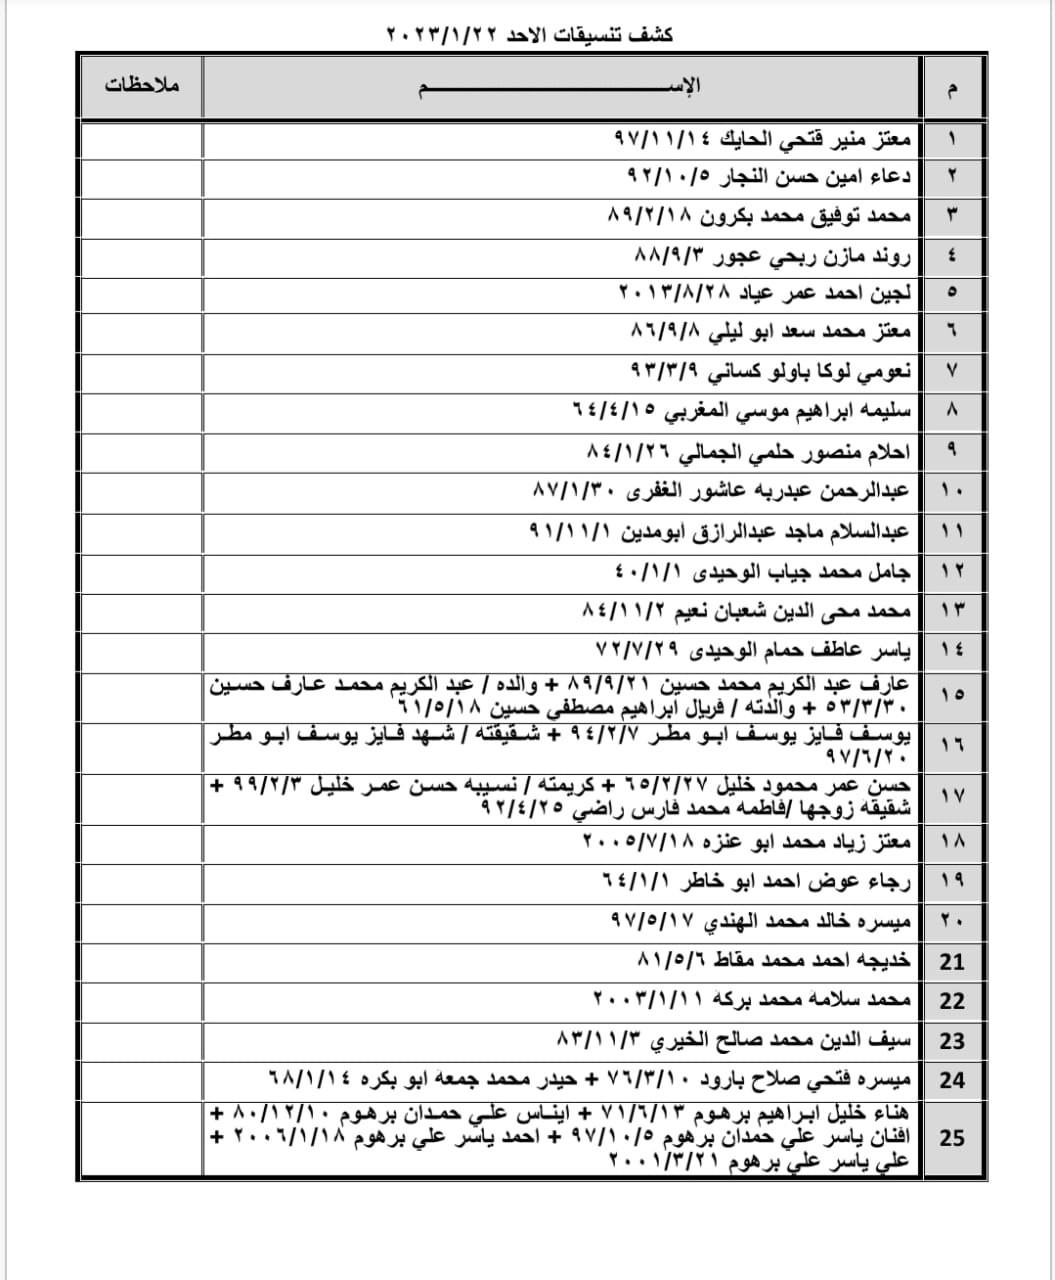 كشف تنسيقات الاحد ٢٠٢٣/١/٢٢
م الإســـــــــــــــــــــــــــم ملاحظات
١ معتز منير فتحي الحايك ٩٧/١١/١٤
٢ دعاء امين حسن النجار ٩٢/١٠/٥
٣ محمد توفيق محمد بكرون ٨٩/٢/١٨
٤ روند مازن ربحي عجور ٨٨/٩/٣
٥ لجين احمد عمر عياد ٢٠١٣/٨/٢٨
٦ معتز محمد سعد ابو ليلي ٨٦/٩/٨
٧ نعومي لوكا باولو كساني ٩٣/٣/٩
٨ سليمه ابراهيم موسي المغربي ٦٤/٤/١٥
٩ احلام منصور حلمي الجمالي ٨٤/١/٢٦
١٠ عبدالرحمن عبدربه عاشور الغفرى ٨٧/١/٣٠
١١ عبدالسلام ماجد عبدالرازق ابومدين ٩١/١١/١
١٢ جامل محمد جياب الوحيدى ٤٠/١/١
١٣ محمد محى الدين شعبان نعيم ٨٤/١١/٢
١٤ ياسر عاطف حمام الوحيدى ٧٢/٧/٢٩
١٥ عارف عبد الكريم محمد حسين ٨٩/٩/٢١ + والده / عبد الكريم محمد عارف حسين
٥٣/٣/٣٠ + والدته / فريال ابراهيم مصطفي حسين ٦١/٥/١٨
١٦ يوسف فايز يوسف ابو مطر ٩٤/٢/٧ + شقيقته / شهد فايز يوسف ابو مطر
٩٧/٦/٢٠
١٧ حسن عمر محمود خليل ٦٥/٢/٢٧ + كريمته / نسيبه حسن عمر خليل ٩٩/٢/٣ +
شقيقة زوجها /فاطمه محمد فارس راضي ٩٢/٤/٢٥
١٨ معتز زياد محمد ابو عنزه ٢٠٠٥/٧/١٨
١٩ رجاء عوض احمد ابو خاطر ٦٤/١/١
٢٠ ميسره خالد محمد الهندي ٩٧/٥/١٧
21 خديجه احمد محمد مقاط ٨١/٥/٦
22 محمد سلامة محمد بركة ٢٠٠٣/١/١١
23 سيف الدين محمد صالح الخيري ٨٣/١١/٣
24 ميسره فتحي صلاح بارود ٧٦/٣/١٠ + حيدر محمد جمعة ابو بكره ٦٨/١/١٤
25 هناء خليل ابراهيم برهوم ٧١/٦/١٣ + ايناس علي حمدان برهوم ٨٠/١٢/١٠ +
افنان ياسر علي حمدان برهوم ٩٧/١٠/٥ + احمد ياسر علي برهوم ٢٠٠٦/١/١٨ +
علي ياسر علي برهوم ٢٠٠١/٣/٢١